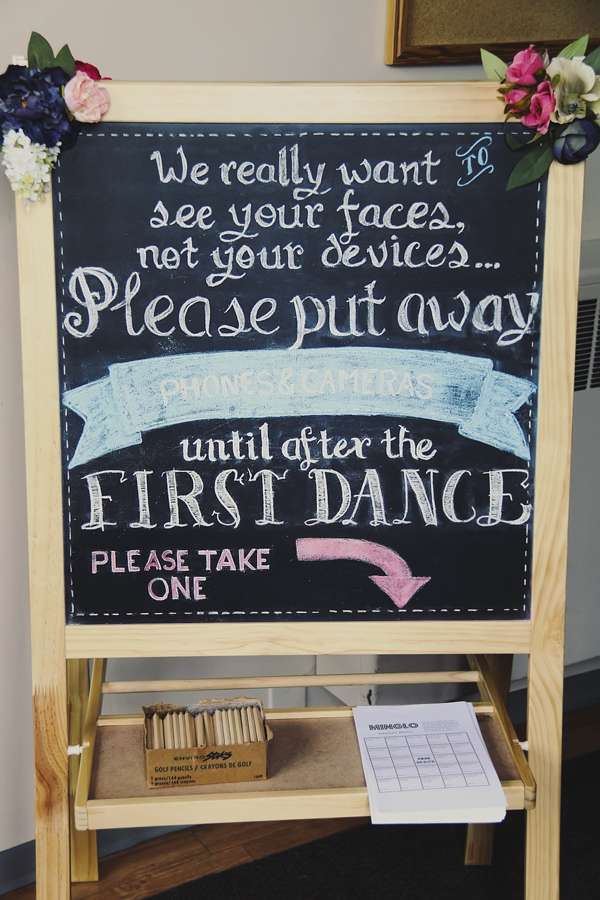 We really want TO
see your faces,
not your devices...
Please put away
PHONES & CAMERAS
until after the
FIRST DANCE
PLEASE TAKE
ONE
MINGLO
GOLF PENCILS / CRAYONS DE GOLF